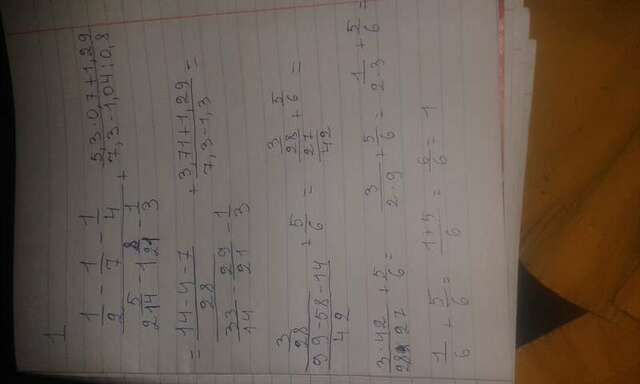 1.
(1/2 - 1/7 - 1/4)/(2 5/14 - 1 8/21 - 1/3) + (5,3·0,7+1,29)/(7,3-1,04:0,8)
= ((14-4-7)/28)/(33/14 - 29/21 - 1/3) + (3,71+1,29)/(7,3-1,3) =
(3/28)/((99-58-14)/42) + 5/6 = (3/28)/(27/42) + 5/6 =
(3·42)/(28·27) + 5/6 = 3/(2·9) + 5/6 = 1/(2·3) + 5/6 =
1/6 + 5/6 = (1+5)/6 = 6/6 = 1